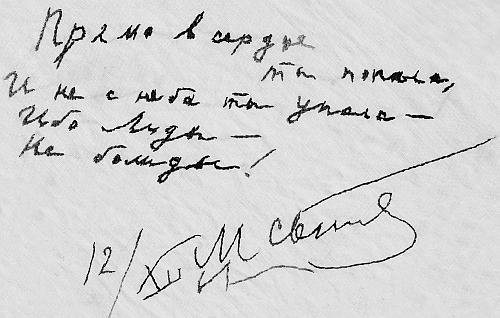 Прямо в сердце
ты попала,
И не с неба ты упала —
Ибо Лиды —
Не болиды!
12/XII М Светл